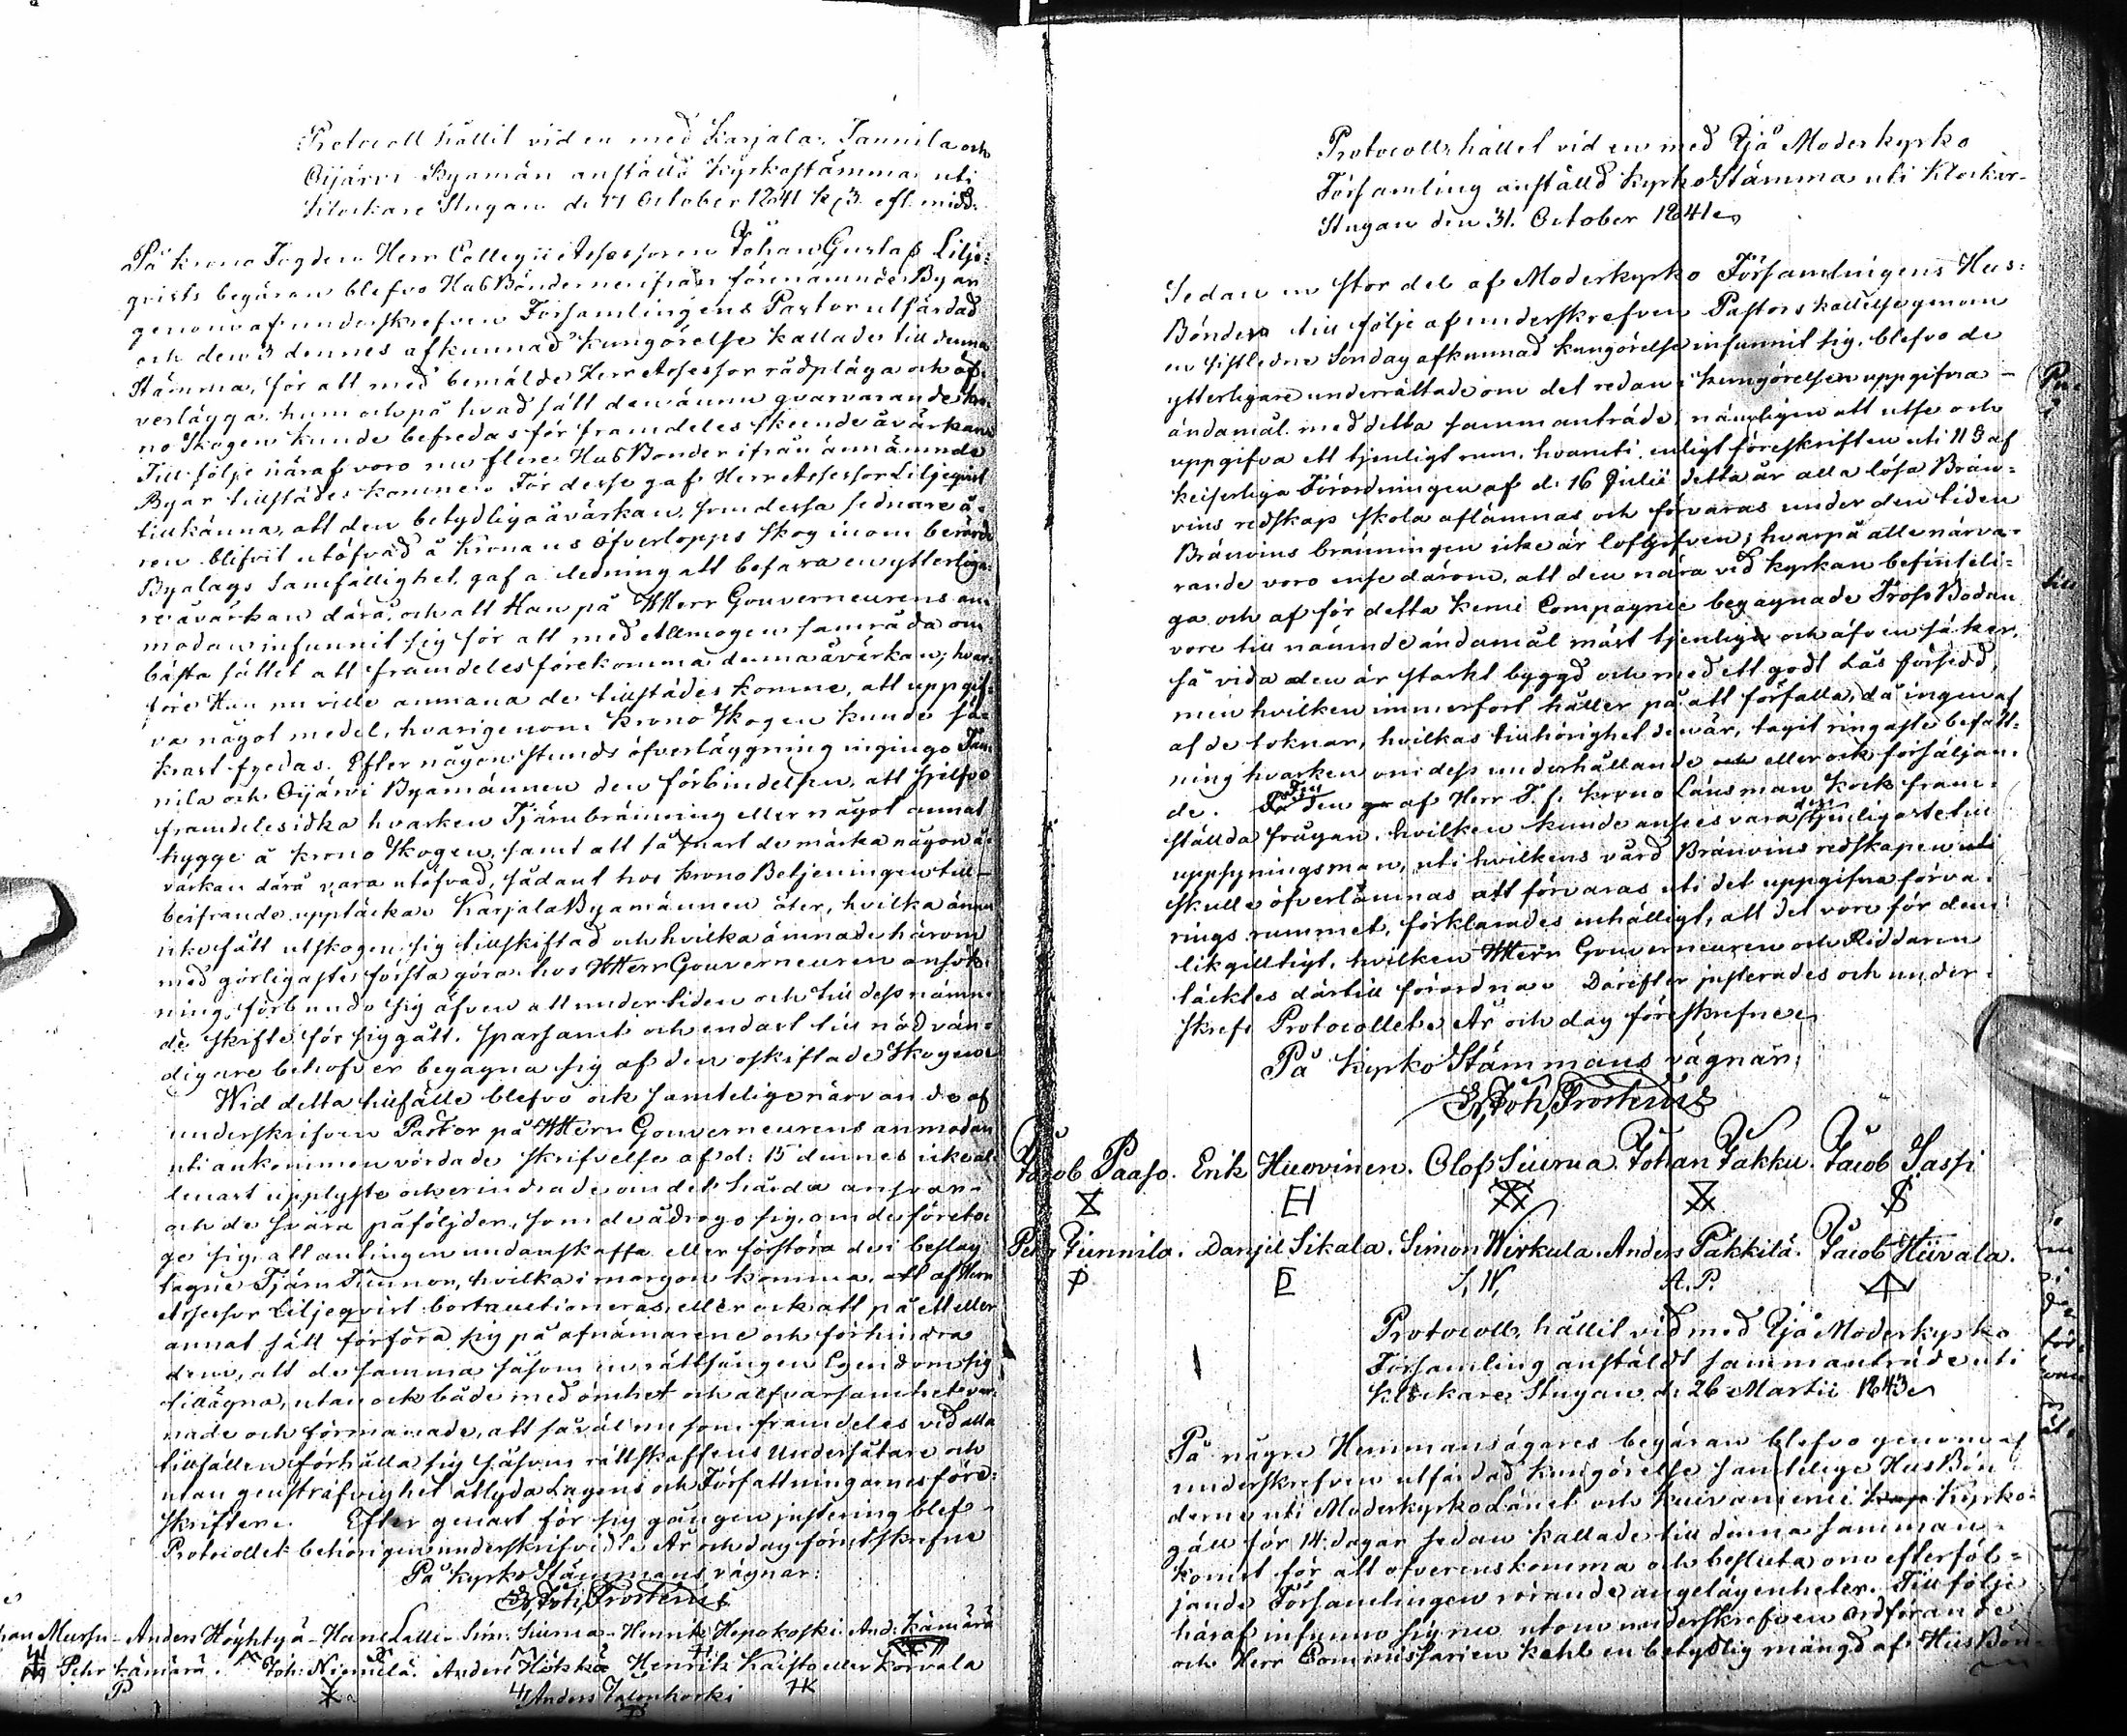 Protocoll hållit vid en med Karjala, Tannila och
Oijärvi Byamän anställd Kyrkostämma uti
Klockare Stugan d. 17 October 1841 kl 3 eft. midd.
På Krono Fogden Herr Collegii Assessoren Johan Gustaf Lilje-
qvists begäran blefvo HusBönderne ifrån förenämnde Byar
genom af underskrefven Församlingens Pastor utfärdad
och den 3 dennes afkunnad kungörelse kallade till denna
Stämma, för att med bemälde Herr Assessor rådpläga och öf-
verlägga hurn och på hvad sätt den ännu qvarvarande Kro-
no Skogen kunde befredas för framdeles skeende åvärkan.
Till följe häraf voro nu flere HusBönder ifrån ännämnde
Byar tillstädes komne. För desse gaf Herr Assessor Liljeqvist
tillkänna, att den betydliga åvärkan, som dessa sednare å-
ren blifvit utöfvad å Kronans Öfverlopps Skog inom berörde
Byalags Samfällighet, gaf anledning att befara en ytterliga-
re åvärkan därå, och att Han på HHerr Gouverneurens an-
modan infunnit sig för att med Allmogen samråda om
bästa sättet att framdeles förekomma denna åvärkan; hvar-
före Han nu ville anmana de tillstädes komne, att uppgif-
va något medel, hvarigenom Krono Skogen kunde sä-
krast fredas. Efter någon stunds öfverläggning ingingo Tan-
nila och Oijärvi Byamännen den förbindelsen, att hvilfvo
framdeles idka hvarken Tjärubränning eller något annat
hygge å Krono Skogen, samt att så snart de märka någon å-
värkan därå vara utöfvad, sådant hos Krono Betjeningen till
beifrande upptäcka. Karjala Byamännen åter, hvilka ännu
icke fått utskogen sig tillskiftad och hvilka ämnade härom
med görligaste första göra hos HHerr Gouverneuren ansök-
ning, förbundo sig äfven att under tiden och till dess nämn-
de skifte för sig gått, sparsamt och endast till nödvän-
digare behofver begagna sig af den oskiftade Skogen.
Wid detta tillfälle blefvo ock samtelige närvarande af
underskrifven Pastor på HHerr Gouverneurens anmodan
uti ankommen vördade skrifvelse af d: 15 dennes icke al-
lenast upplyste och erindrade om det hårda ansvar
och de svåra påföljder, som de ådrogo sig, om de företo-
ge sig, att antingen undanskaffa eller förstöra de i beslag
tagne Tjäru Tunnor, hvilka i morgon komma, att af Herr
Assessor Liljeqvist bortauctioneras, eller ock att på ett eller
annat sätt förföra sig på afnämarene och förhindra
dem, att de samma såsom en rättfången Egendom sig
tillägna, utan ock både med ömhet och alfvarsamhet var-
nade och förmanade, att såväl nu som framdeles vid alla
tillfällen förhålla sig såsom rättskaffens Undersåtare och
utan genstrafvighet åtlyda Lagens och Författningarnes före-
skrifter. Efter genast för sig gången justering blef
Protocollet behörigen underskrifvit. År och dag förutskrefne
På KyrkoStämmans vägnar:
Er. Joh. Frosterus
Mursu - Anders Höyhtyä - Hans Lilli - Sim. Siurua - Henrik Hepokoski. And. Kämärä
Pehr Kämärä. Joh. Niemelä. Anders Hökkä Henrik Kaisto eller Korvala
P
HK
Anders Jalonkoski
Protocoll, hållet vid en med Ijå Moderkyrko
Församling anställd KyrkoStämma uti Klockar-
Stugan den 31. October 1841.
Sedan en stor del af Moderkyrko Församlingens Hus-
Bönder till följe af underskrefven Pastors kallelse genom
en sistledne Söndag afkunnad kungörelse infunnit sig, blefvo de
ytterligare underrättade om det redan i kungörelsen uppgifna
ändamål med detta sammanträde, nämligen att utse och
uppgifva ett tjenligt rum, hvaruti, enligt föreskriften uti 11 § af
Keiserliga Förordningen af d. 16 Julii detta år alla lösa Brän-
vins redskap skola aflämnas och förvaras under den tiden
Bränvins bränningen icke är lofgifven; hvarpå alle närva-
rande voro ense därom, att den nära vid kyrkan befinteli-
ga och af för detta Kemi Compagnie begagnade Tross Bodan
vore till nämnde ändamål mäst tjenlig och äfven säker,
så vida den är starkt byggd och med ett godt Lås försedd,
men hvilken immerfort håller på att förfalla, då ingen af
af de toknar, hvilkas tillhörighet den är, tagit ringaste befatt-
ning hvarken om dess underhållande och eller ock försäljan-
de. Till den af Herr T. f. Krono Länsman Kock fram-
ställda frågan, hvilken kunde anses vara den tjenligaste till
uppsyningsman, uti hvilkens vård Bränvins redskapen uti
skulle öfverlämnas att förvaras uti det uppgifna förva-
rings rummet, förklarades enhälligt, att det vore för dem
likgilltigt, hvilken HHerr Gouverneuren och Riddaren
täcktes därtill förordna. Därefter justerades och under-
skrefs Protocollet. År och dag föreskrefne.
På KyrkoStämmans vägnar:
Er. Joh. Frosterus
Jacob Paaso. Erik Huovinen. Olof Siurua. Johan Jakku. Jacob Jassi
Pehr Tiennila. Daniel Sikala. Simon Wirkula. Anders Pakkila. Jacob Hiivala.
P
S. W.
A. P.
Protocoll, hållit vid med Ijå Moderkyrko
Församling anstäldt sammanträde uti
Klockare Stugan d. 26 Martii 1843.
På någre Hemmansägares begäran blefvo genom af
underskrefven utfärdad kungörelse samtelige HusBön-
derne uti ModerkyrkoLänet och Kuivaniemi Kyrko-
gäll för 14 dagar sedan kallade till denna samman-
komst för att öfverenskomma och besluta om efterföl-
jande Församlingen rörande angelägenheter. Till följe
häraf infunno sig nu utom underskrefven Ordförande
och Herr Commissarien Kehl en betydlig mängd af HusBön-